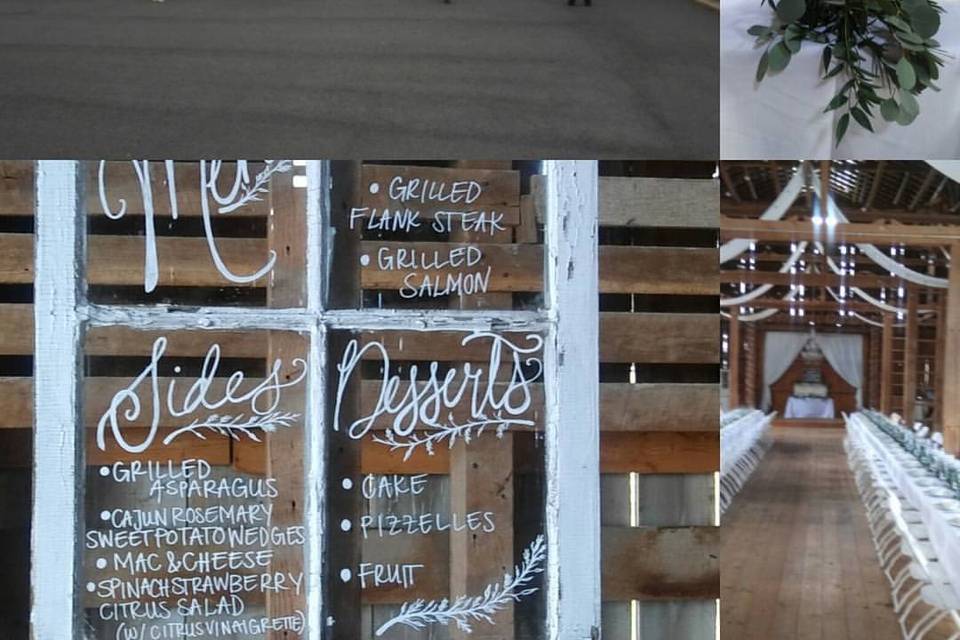 GRILLED
FLANK STEAK
GRILLED
SALMON
Sides
• GRILLED
ASPARAGUS
• CAJUN ROSEMARY
SWEET POTATO WEDGES
• MAC & CHEESE
• SPINACH STRAWBERRY
CITRUS SALAD
(W/ CITRUS VINAIGRETTE)
Desserts
• CAKE
• PIZZELLES
• FRUIT